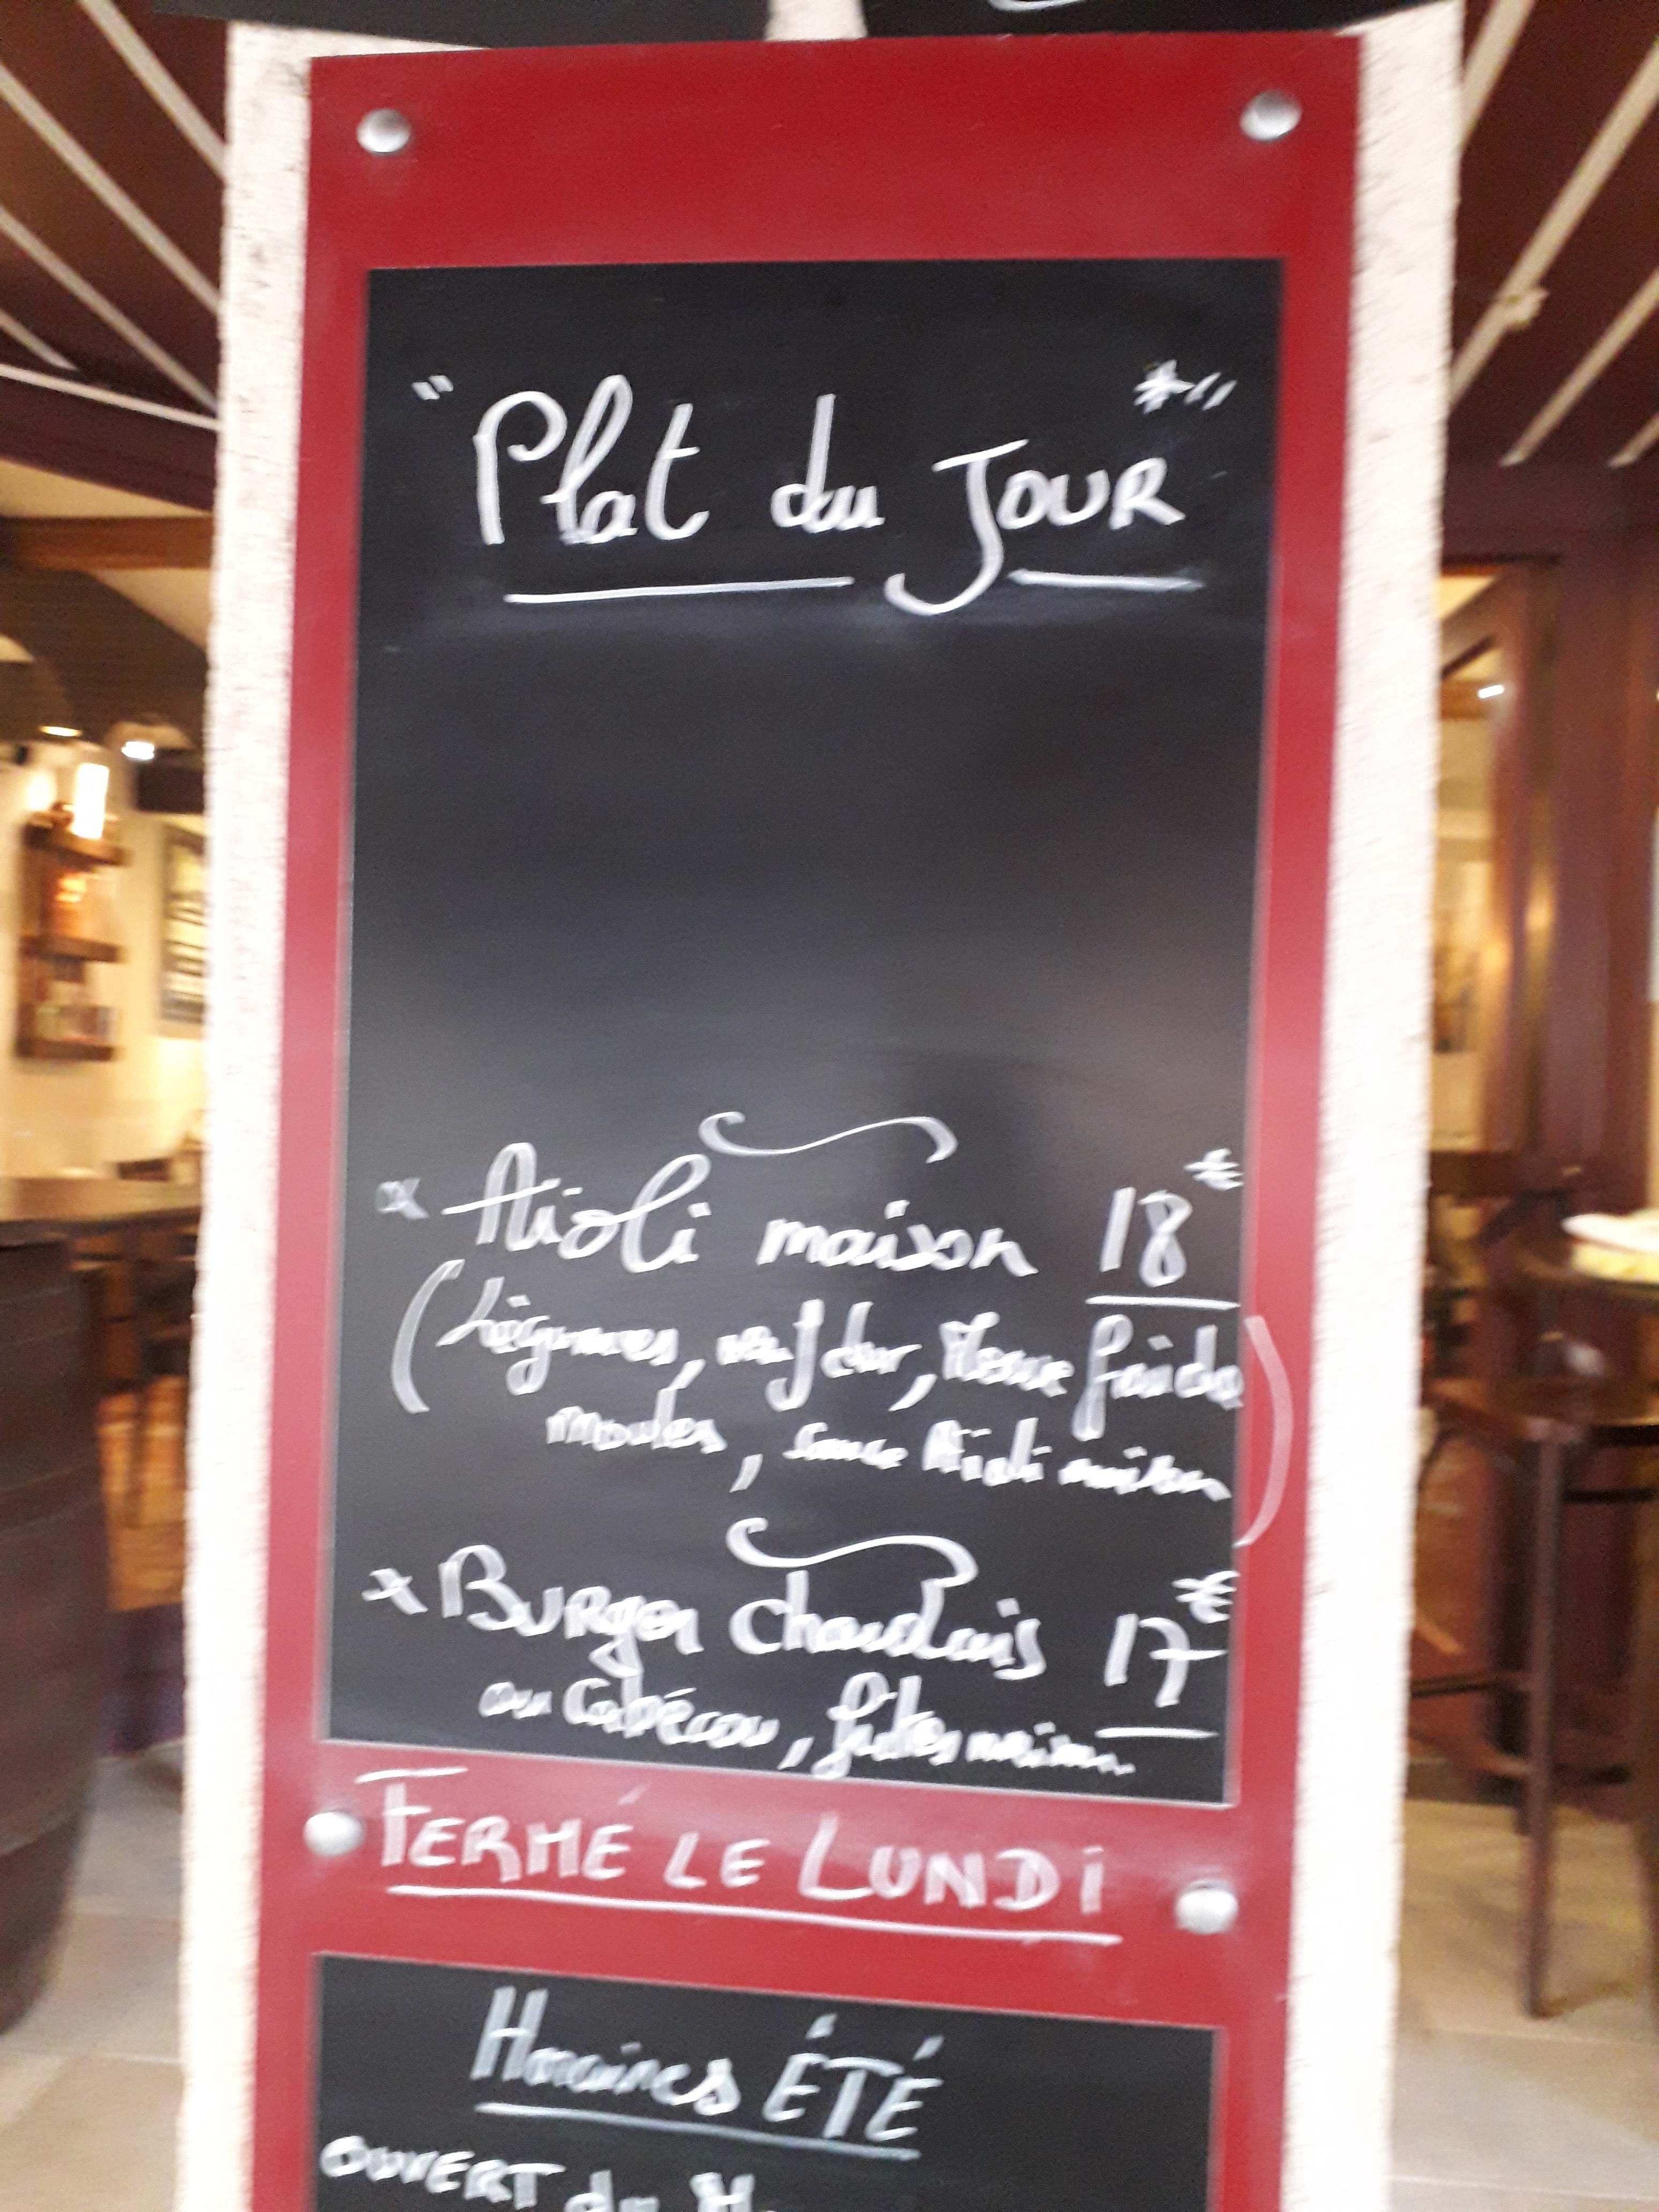 " Plat du JOUR * "
x Aïoli maison 18€
(Légumes, œuf dur, Morue froide
moules, sauce Aïoli maison)
x BURger charolais 17€
ou Cabécou, frites maison
FERMÉ LE LUNDI
Horaires ÉTÉ
OUVERT du